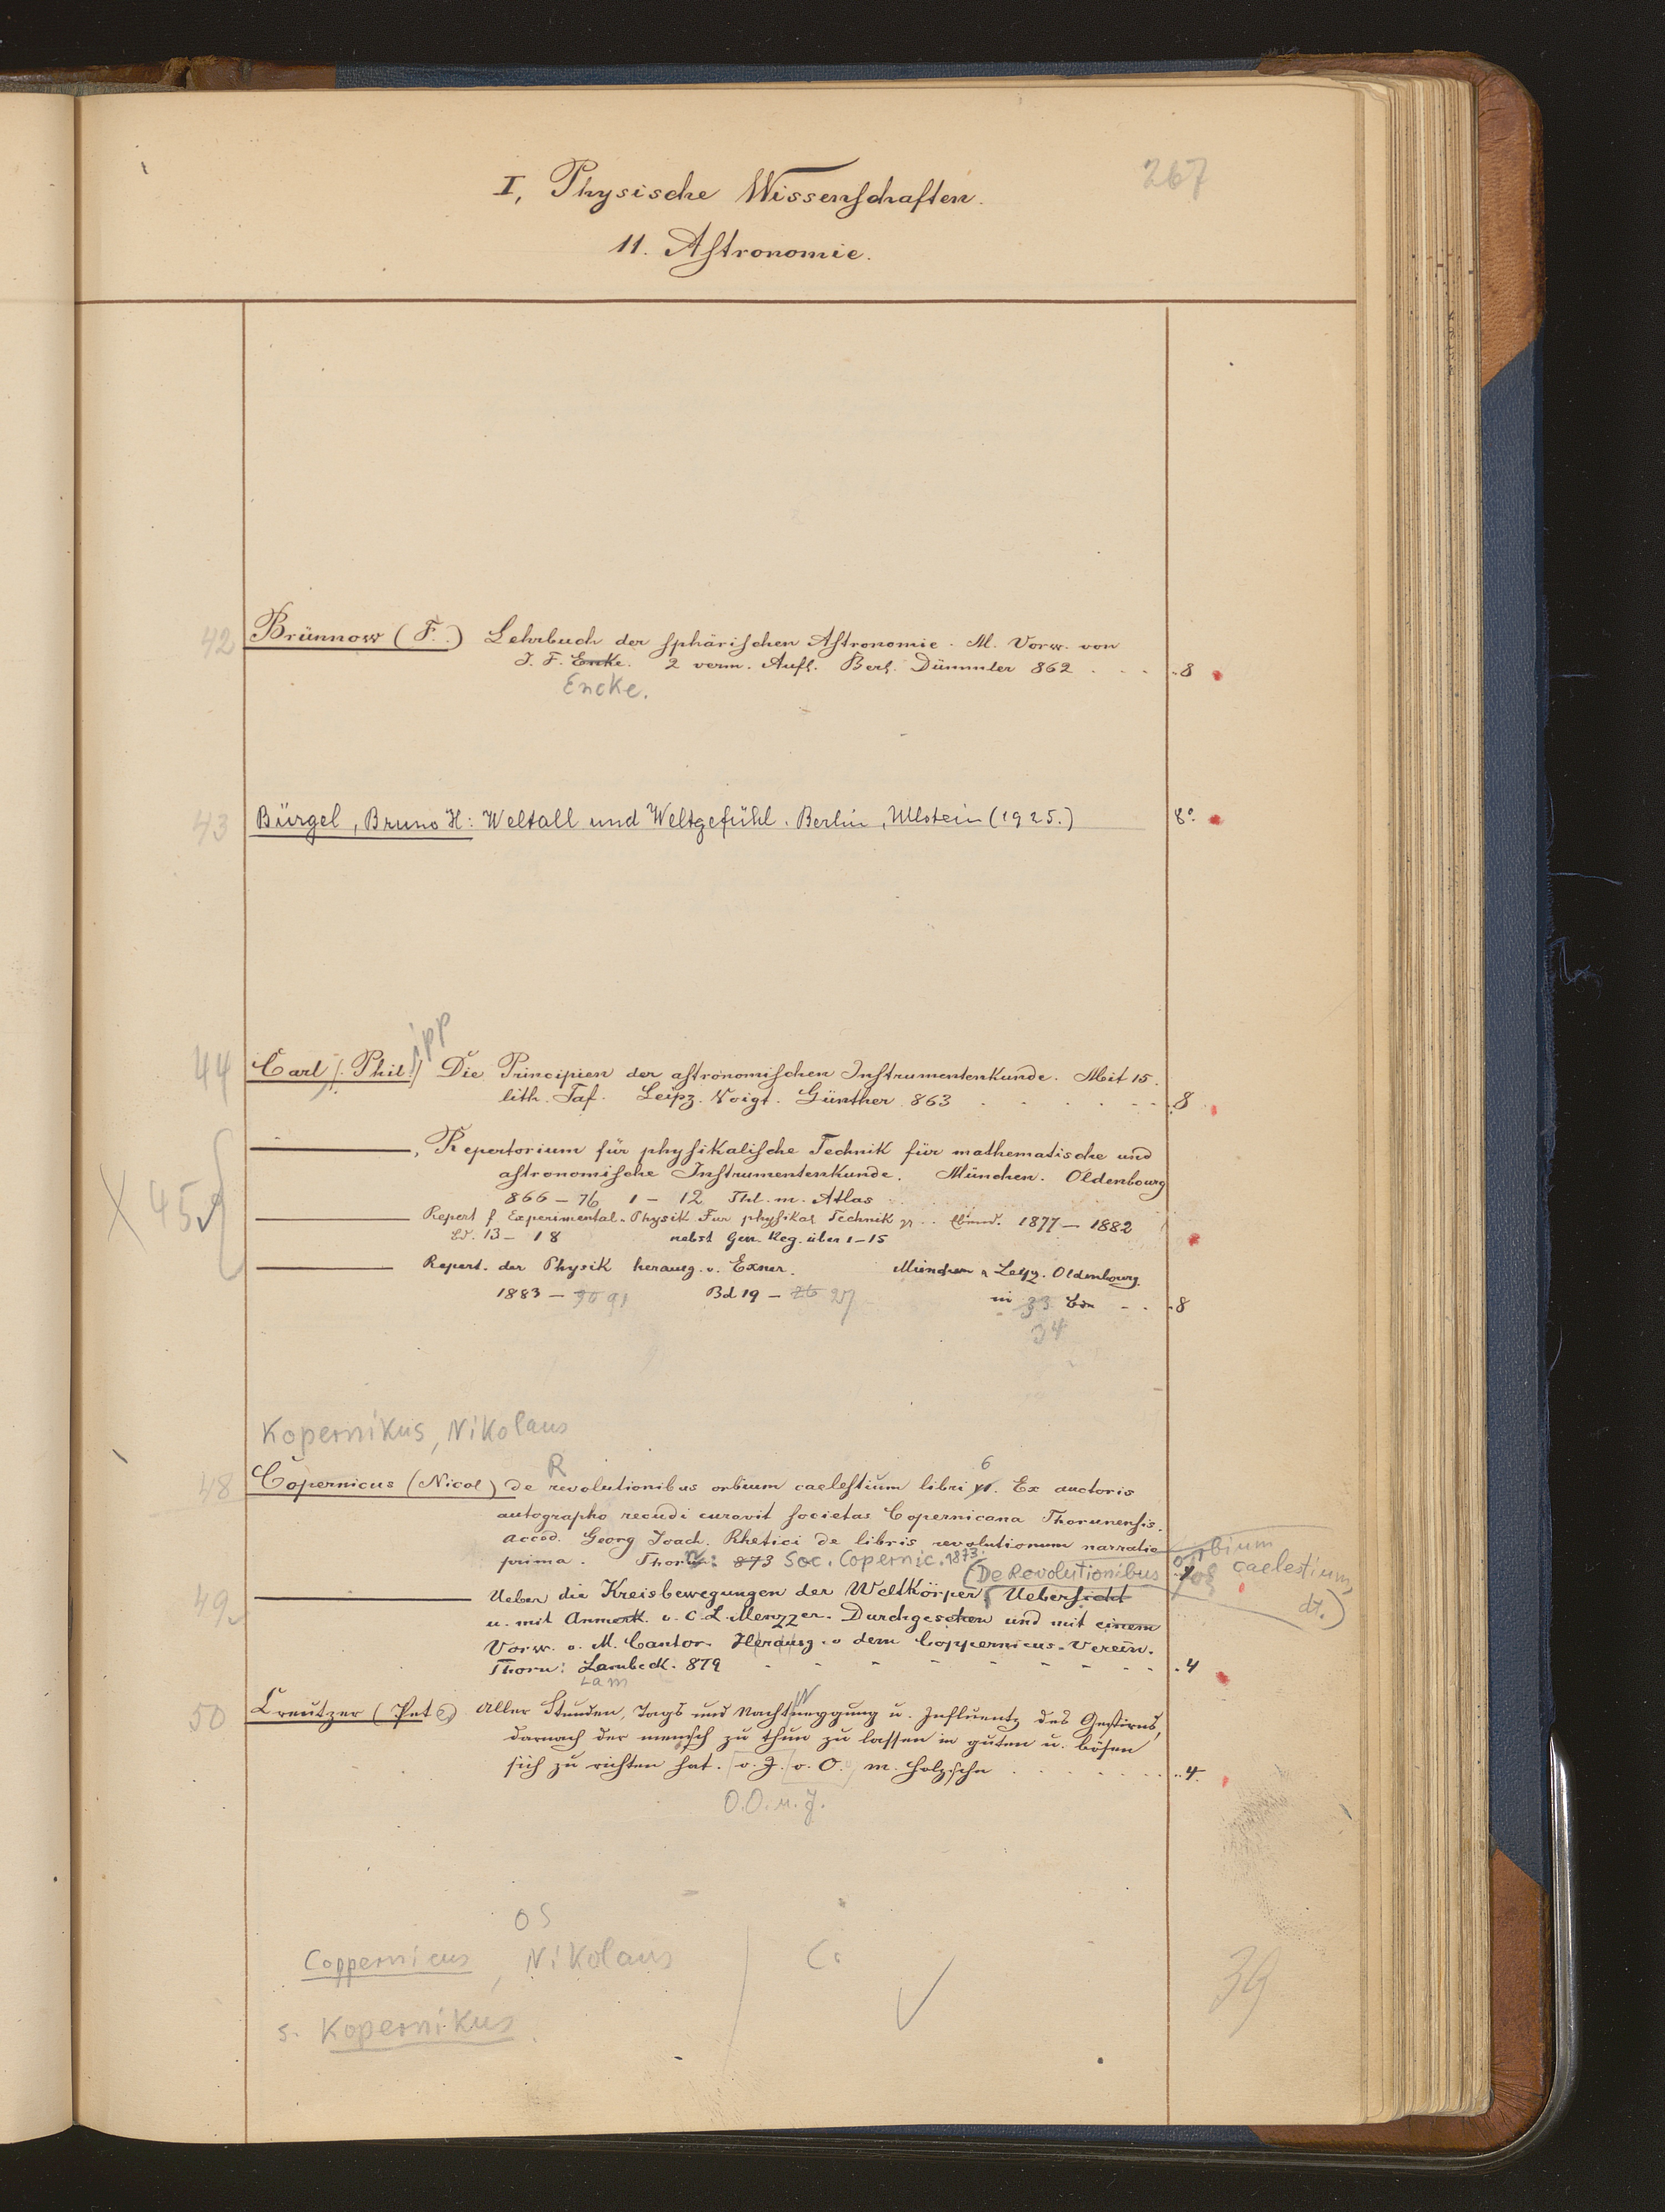 267
I, Physische Wissenschaften.
11. Astronomie.
42 Brünnow (F.) Lehrbuch der sphärischen Astronomie. M. Vorw. von
J. F. Encke. 2 verm. Aufl. Berl. Dümmler 862 . . . . 8
Encke.
43 Bürgel, Bruno H: Weltall und Weltgefühl. Berlin, Ullstein (1925.) 8°
ipp
44 Carl (Phil.) Die Principien der astronomischen Instrumentenkunde. Mit 15.
lith. Taf. Leipz. Voigt. Günther 863 . . . . . . 8
X 45 ———, Repertorium für physikalische Technik für mathematische und
astronomische Instrumentenkunde. München. Oldenbourg
866 – 76 1 – 12 Thl. m. Atlas
——— Repert f Experimental-Physik Für physikal Technik . . Ebend. 1877 – 1882
Bd. 13 – 18 nebst Gen. Reg. über 1–15
——— Repert. der Physik herausg. v. Exner. München u Leipz. Oldenbourg.
1883 – 90 91 Bd 19 – 26 27 in 33 Bdn - . . 8
34
Kopernikus, Nikolaus
R 6
48 Copernicus (Nicol) de revolutionibus orbium caelestium libri VI. Ex auctoris
autographo recudi curavit societas Copernicana Thorunensis.
Acced. Georg Joach. Rhetici de libris revolutionum narratio
prima. Thorn: 873 Soc. Copernic. 1873.
(De Revolutionibus orbium caelestium, dt.)
49 ——— Ueber die Kreisbewegungen der Weltkörper Uebersicht
u. mit Anmerk. v. C. L. Menzzer. Durchgesehen und mit einem
Vorw. v. M. Cantor. Herausg. v dem Coppernicus-Verein.
Thorn: Lambeck. 879 - - - - - - - - . 4
Lam
50 Creutzer (Pet) Aller Stunden, Tags und Nachtsneygung u. Influentz des Gestirns,
darnach der mensch zu thun zu lassen in guten u. bösen
sich zu richten hat. o. J. o. O. m. Holzschn . . . . . . . 4.
O. O. u. J.
os
Coppernicus, Nikolaus
s. Kopernikus
39